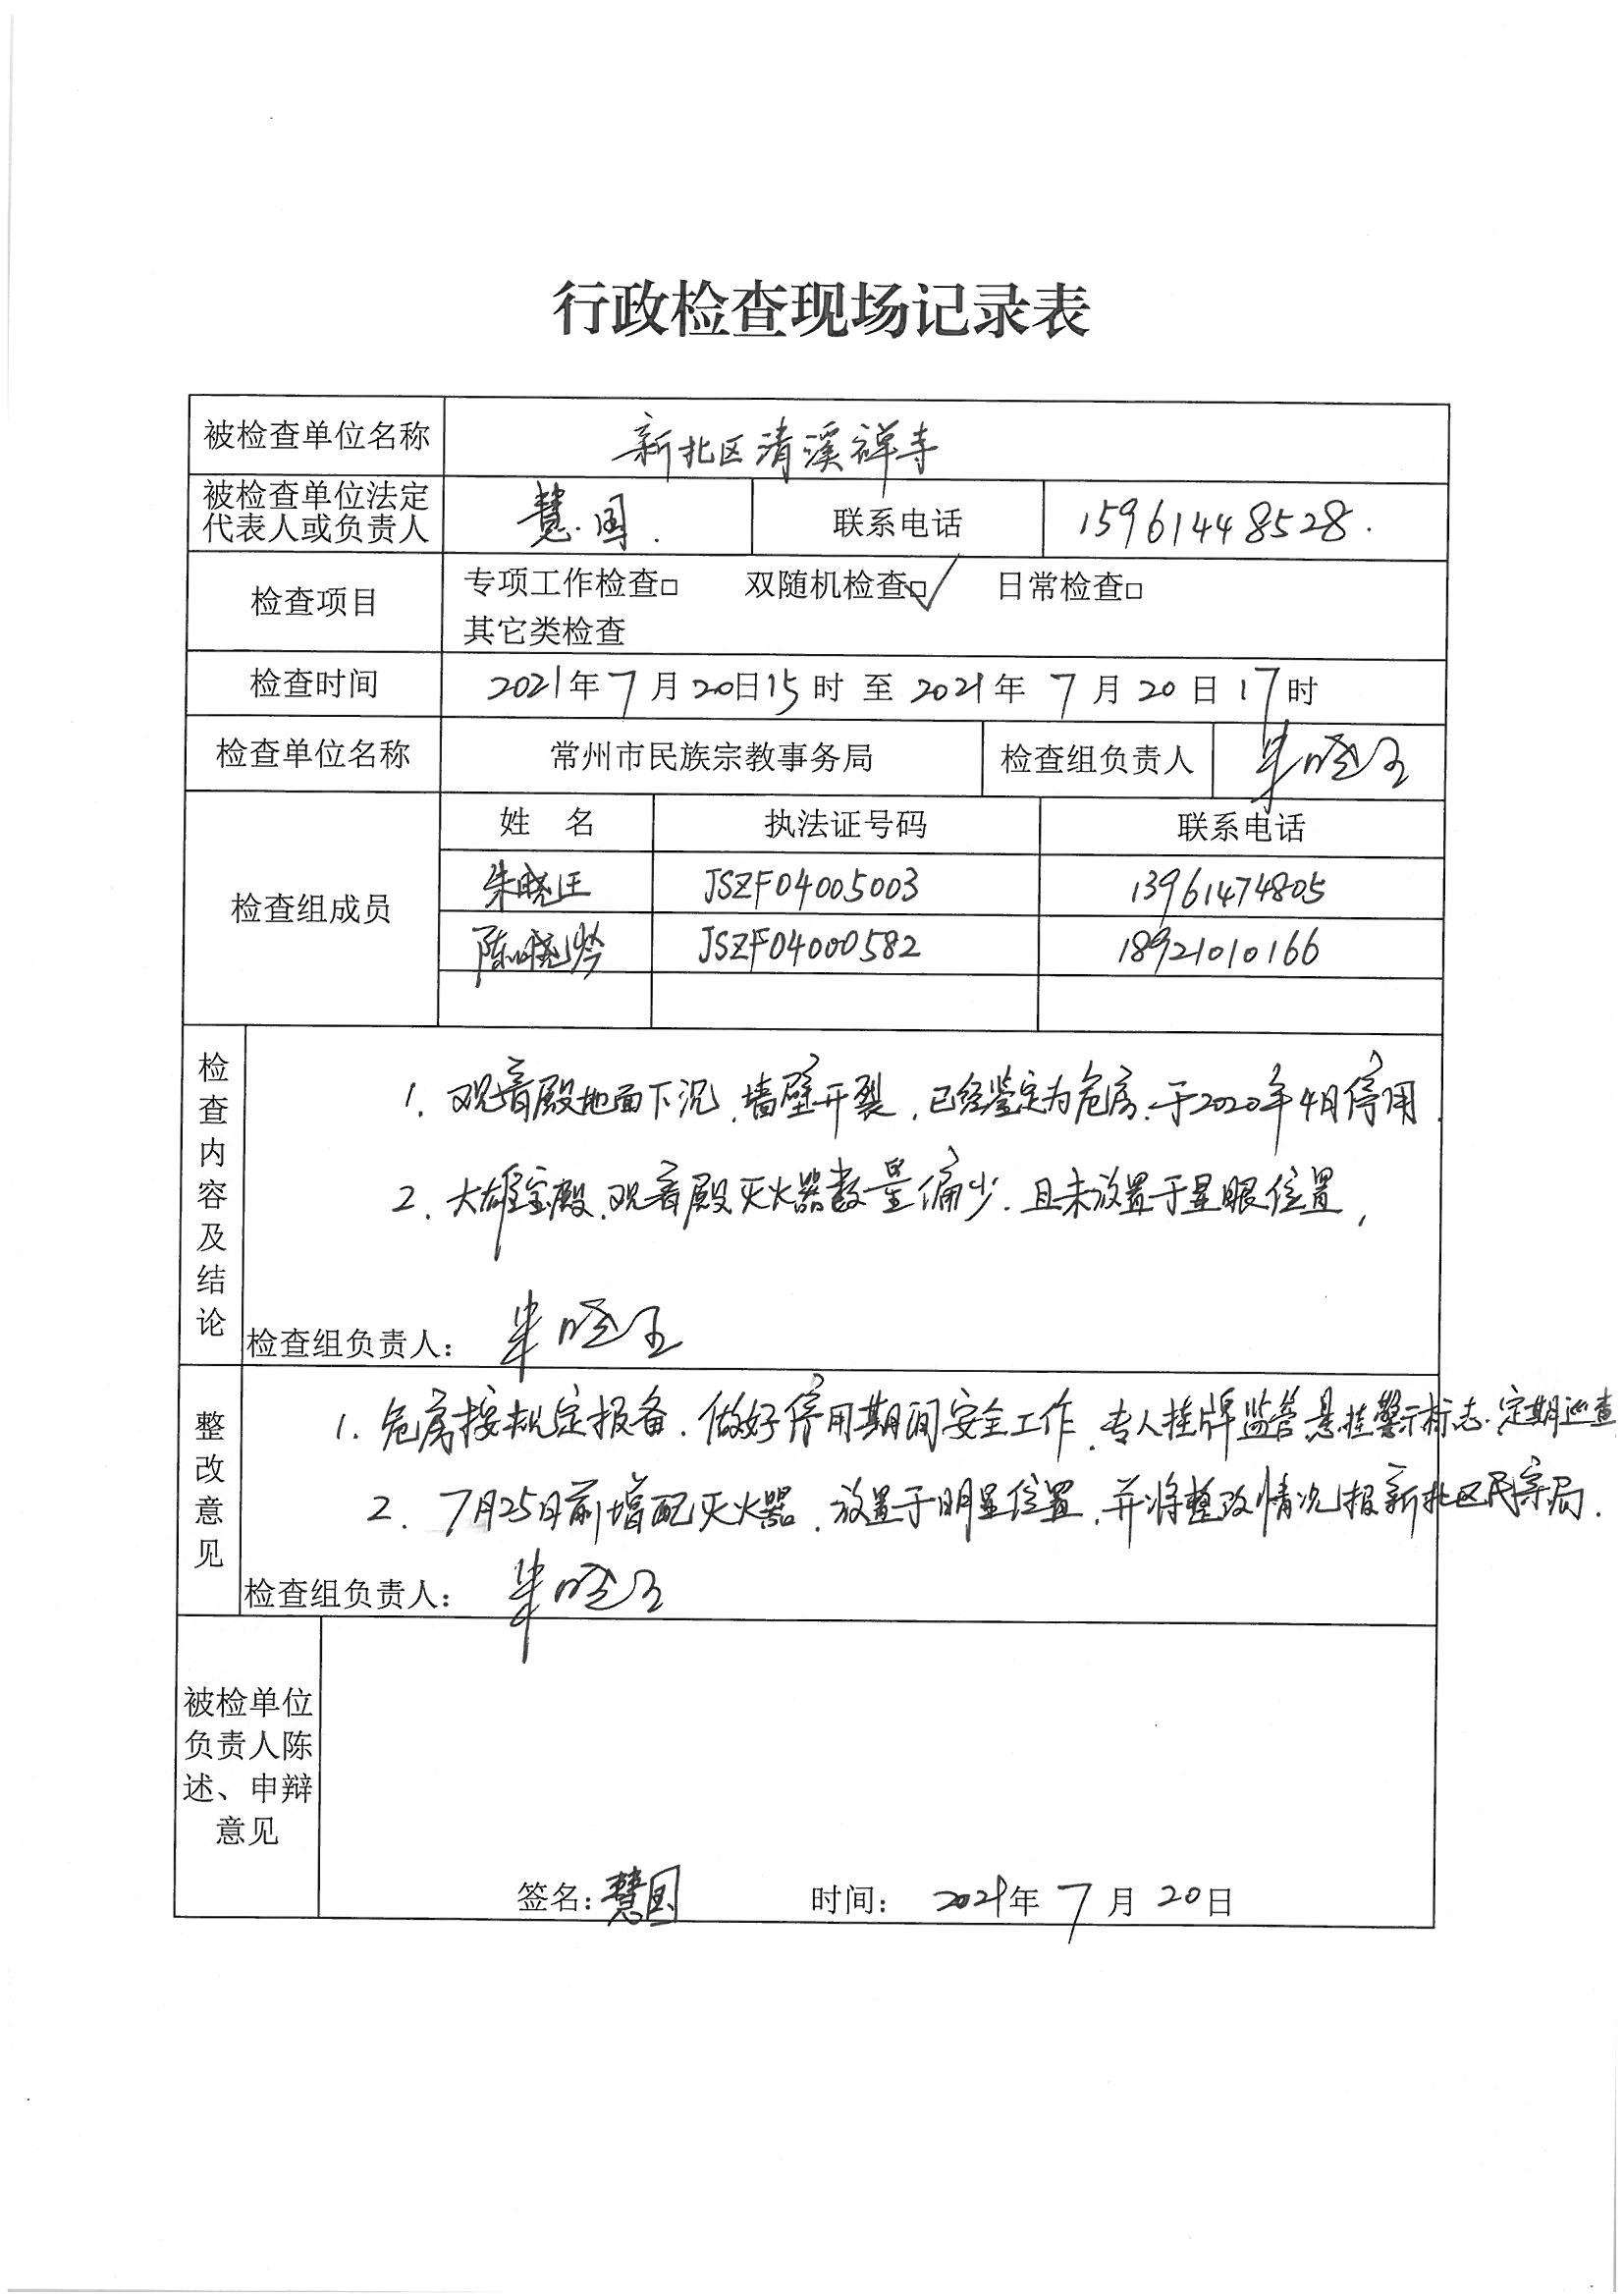 行政检查现场记录表
被检查单位名称 新北区清溪禅寺
被检查单位法定代表人或负责人 慧国. 联系电话 15961448528.
检查项目 专项工作检查□ 双随机检查□√ 日常检查□
其它类检查
检查时间 2021年7月20日15时 至 2021年7月20日17时
检查单位名称 常州市民族宗教事务局 检查组负责人
检查组成员 姓 名 执法证号码 联系电话
朱晓 JSZF04005003 13961474805
陈晓 JSZF04000582 18921010166
检查内容及结论
1. 观音殿地面下沉、墙壁开裂，已经鉴定为危房，于2020年4月停用.
2. 大雄宝殿、观音殿灭火器数量偏少，且未放置于显眼位置，
检查组负责人：
整改意见
1. 危房按规定报备，做好停用期间安全工作，专人挂牌监管悬挂警示标志，定期巡查
2. 7月25日前增配灭火器，放置于明显位置，并将整改情况报新北区民宗局.
检查组负责人：
被检单位负责人陈述、申辩意见
签名：慧国 时间： 2021年7月20日